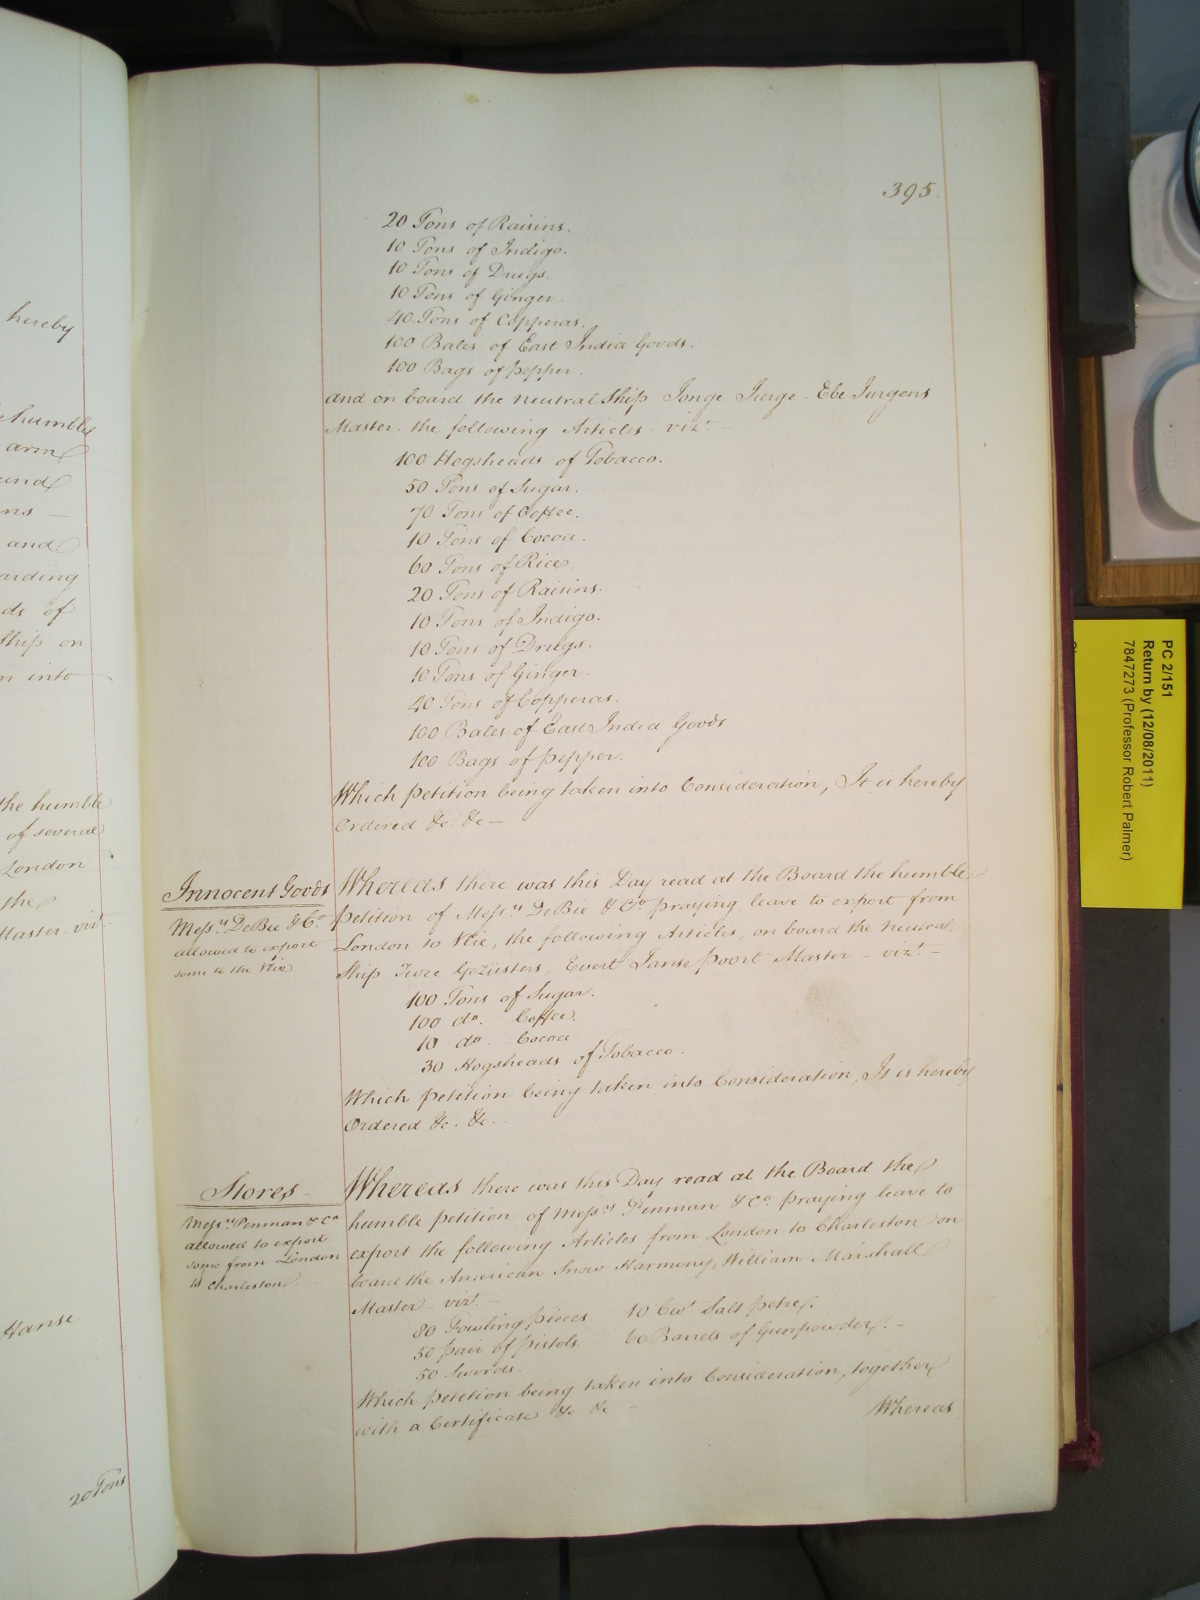 hereby
humble
arm
and
ns —
and
arding
ds of
Ship on
n into
the humble
of several
London
the
Master vizt.
Hanse
20 Tons
395.
20 Tons of Raisins.
10 Tons of Indigo.
10 Tons of Drugs.
10 Tons of Ginger
40 Tons of Copperas.
100 Bales of East India Goods.
100 Bags of Pepper.
and on board the neutral Ship Jonge Jurge. Ebe Jurgens
Master, the following Articles vizt. —
100 Hogsheads of Tobacco.
50 Tons of Sugar.
70 Tons of Coffee.
10 Tons of Cocoa.
60 Tons of Rice.
20 Tons of Raisins.
10 Tons of Indigo.
10 Tons of Drugs.
10 Tons of Ginger.
40 Tons of Copperas.
100 Bales of East India Goods
100 Bags of Pepper.
Which Petition being taken into Consideration, It is hereby
Ordered &c. &c —
Innocent Goods
Messrs. DeBie & Co.
allowed to export
some to the Vlie
Whereas there was this Day read at the Board the humble
Petition of Messrs. DeBie & Co. praying leave to export from
London to Vlie, the following Articles, on board the neutral
Ship Twee Gezusters, Evert Janse Poort Master — vizt. —
100 Tons of Sugar.
100 do. Coffee.
10 do. Cocoa
30 Hogsheads of Tobacco.
Which Petition being taken into Consideration, It is hereby
Ordered &c. &c.
Stores
Messrs. Penman & Co
allowed to export
some from London
to Charleston.
Whereas there was this Day read at the Board the
humble Petition of Messrs Penman & Co. praying leave to
export the following Articles from London to Charleston on
board the American Snow Harmony, William Marshall
Master vizt. —
80 Fowling Pieces 10 Cwt. Salt Petre.
50 Pair of Pistols 60 Barrels of Gunpowder. —
50 Swords.
Which Petition being taken into Consideration, together
with a Certificate &c &c —
Whereas
PC 2/151
Return by (12/08/2011)
7847273 (Professor Robert Palmer)